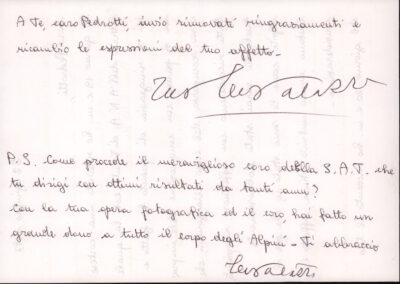 A Te, caro Pedrotti, invio rinnovati ringraziamenti e
ricambio le espressioni del tuo affetto_
Tuo
P.S. Come procede il meraviglioso coro della S.A.T. che
tu dirigi con ottimi risultati da tanti anni?
Con la tua opera fotografica ed il coro, hai fatto un
grande dono a tutto il corpo degli Alpini - Ti abbraccio